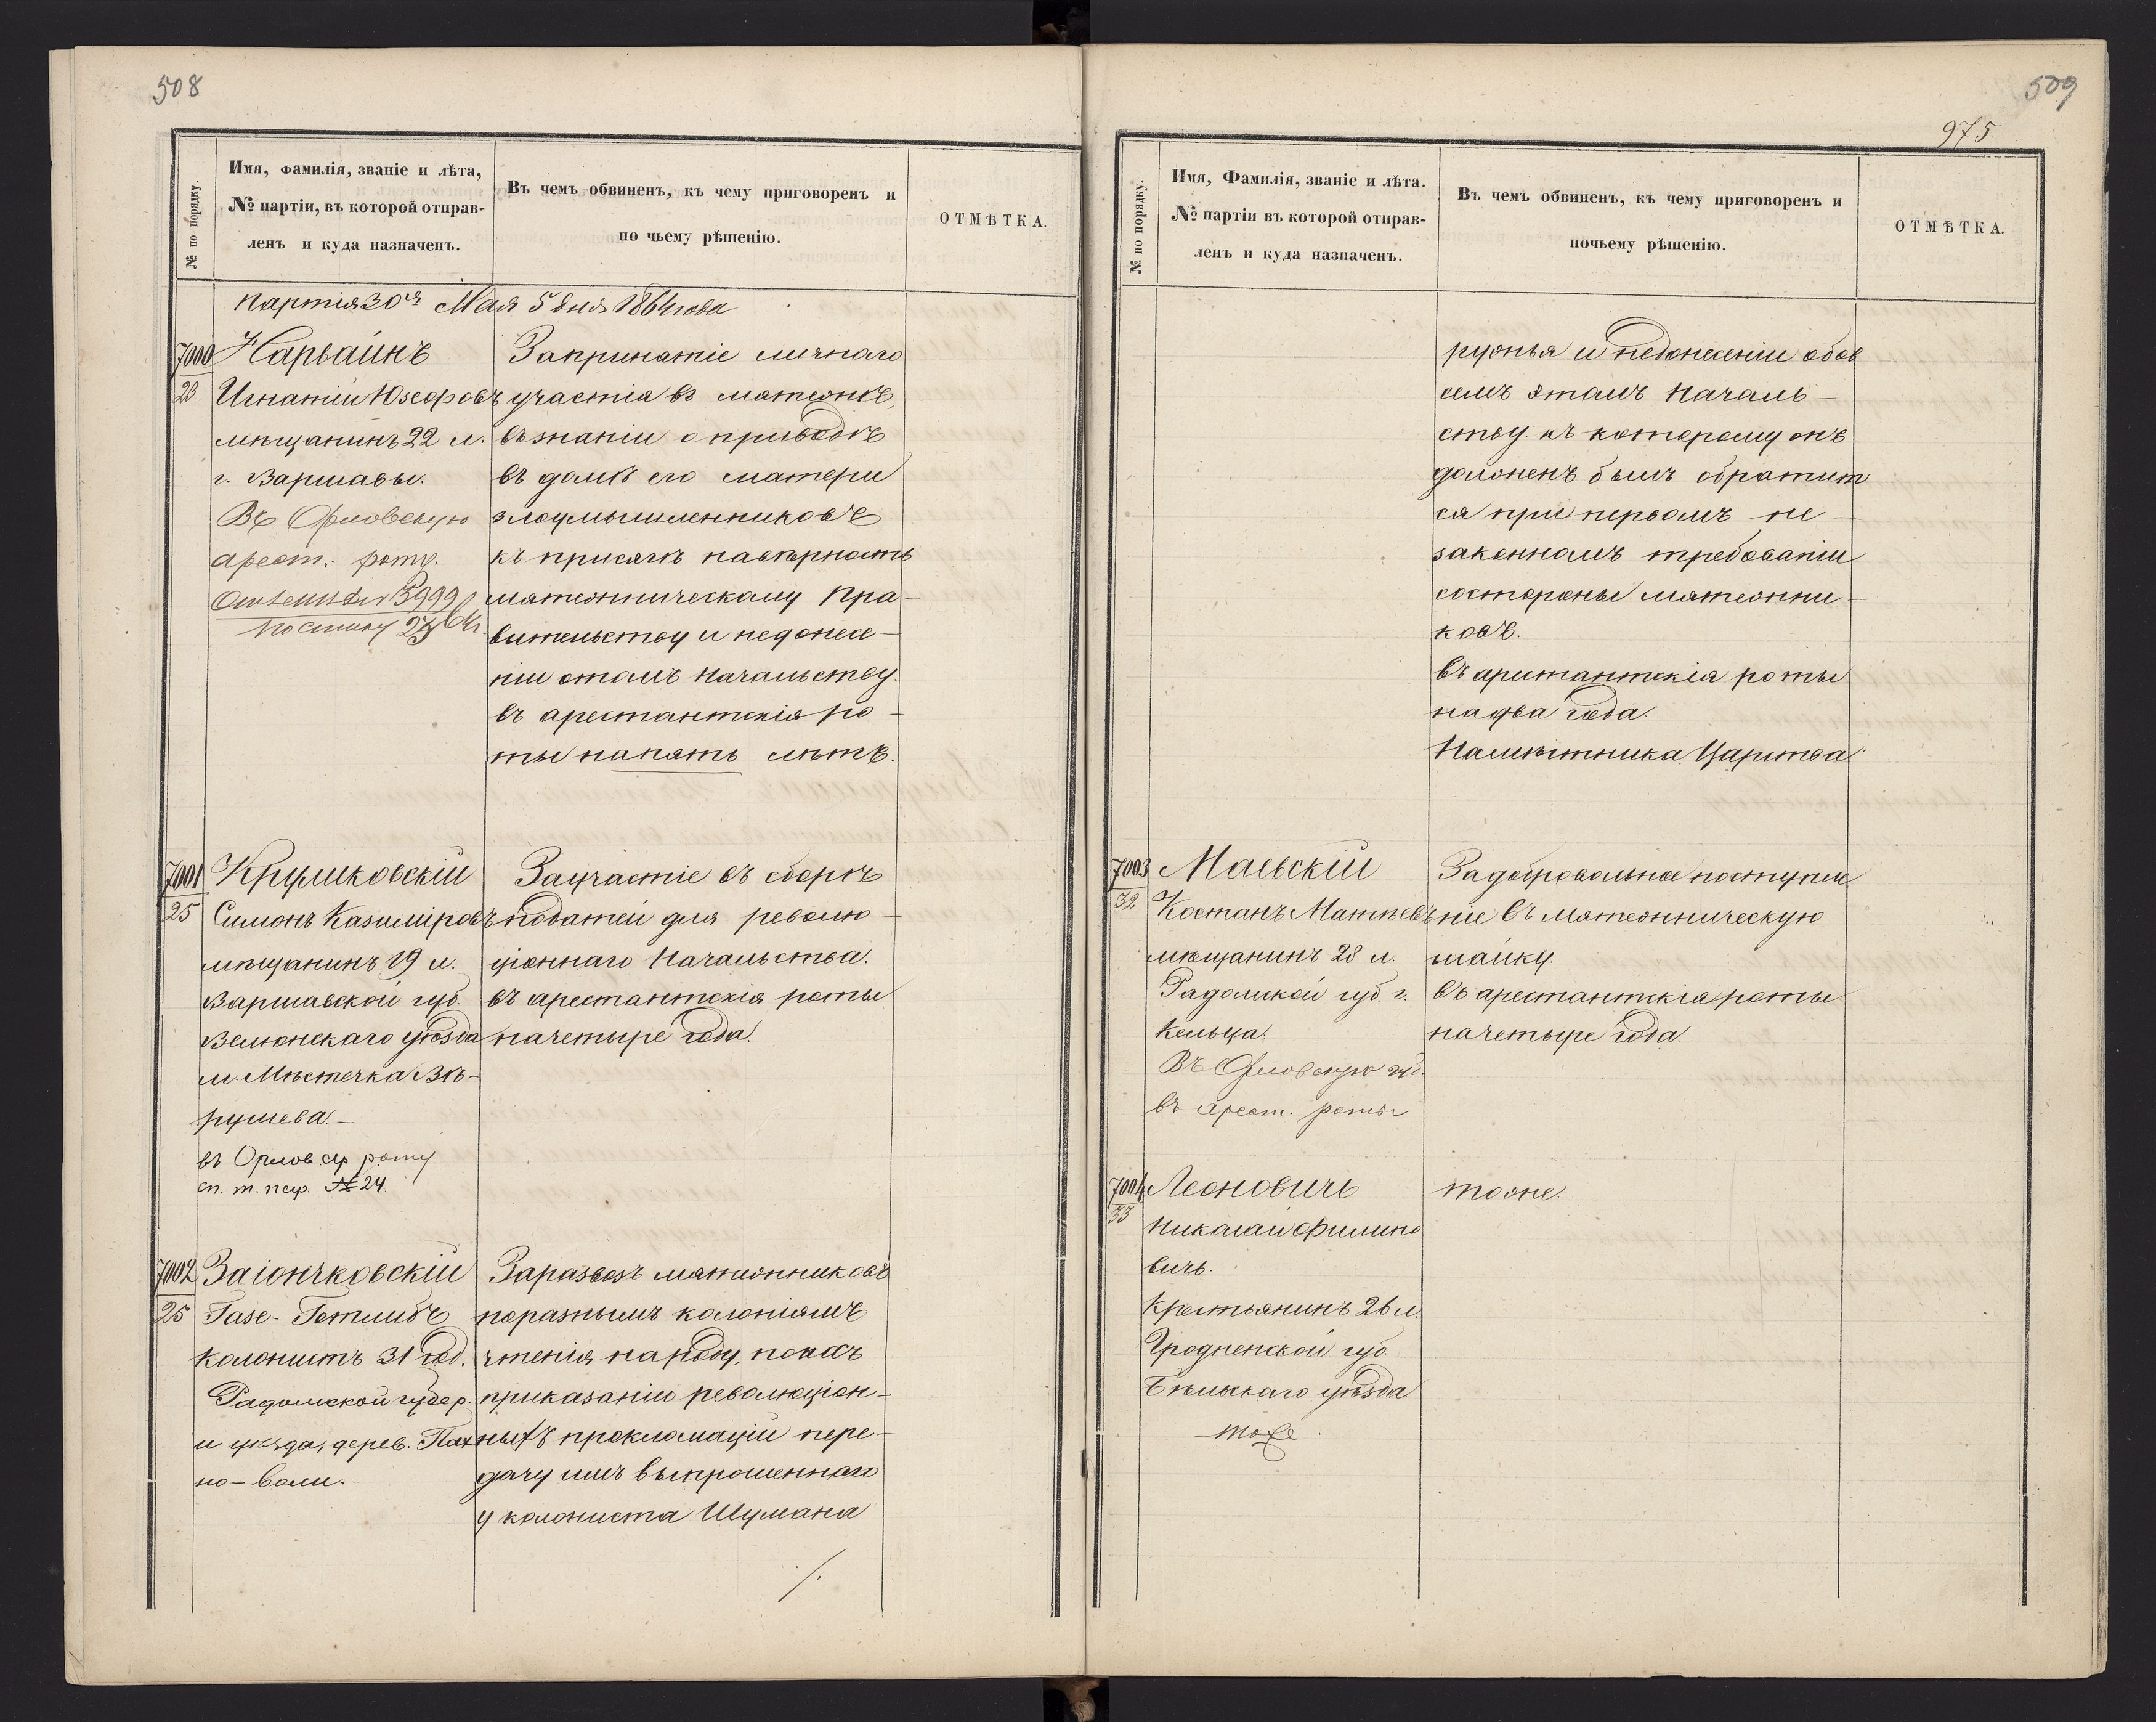 508
№ по порядку.
Имя, фамилія, званіе и лѣта,
№ партіи, въ которой отправ-
ленъ и куда назначенъ.
Въ чемъ обвиненъ, къ чему приговоренъ и
по чьему рѣшенію.
ОТМѢТКА.
партія 30я Мая 5 дня 1864 года
7000
23
Нарвайнъ
Игнатій Юзефовъ
мѣщанинъ 22 л.
г. Варшавы.
Въ Орловскую
арест. роту.
Запринятіе личнаго
участія въ мятежѣ,
въ знаніи о приводѣ
въ домѣ его матери
злоумышленниковъ
къ присягѣ навѣрность
мятежническому Пра-
вительству и недонесе-
ніи отомъ Начальству.
въ арестантскія ро-
ты напять лѣтъ.
7001
25
Круликовскій
Симонъ Казиміровъ
мѣщанинъ 19 л.
Варшавской губ.
Велюнскаго уѣзда
м. Мѣстечка Вѣ-
рушева.-
въ Орлов. ар роту
№ 24.
Заучастіе въ сборѣ
податей для револю-
ціоннаго Начальства.
въ арестантскія роты
начетыре года.
7002
25
Заіончковскій
Газе-Готлибъ
Колонистъ 31 год.
Радомской губер.
и уѣзда, дерев. Пах
но-воли.
Заразвозъ мятежниковъ
поразнымъ колоніямъ
чтенія народу, покахъ
приказаніи революціон-
ныхъ прокламаціи пере-
дачу имъ выпрошеннаго
у колониста Шумана
./.
509
975.
№ по порядку.
Имя, Фамилія, званіе и лѣта.
№ партіи въ которой отправ-
ленъ и куда назначенъ.
Въ чемъ обвиненъ, къ чему приговоренъ и
почьему рѣшенію.
ОТМѢТКА.
ружья и недонесеніи обов
семъ этомъ Началь-
ству. къ которому онъ
долженъ былъ обратит
ся при первомъ не-
законномъ требованіи
состороны мятежни-
ковъ.
въ ариштантскія роты
надва года.
Намѣстника Царства
7003
32
Маевскій
Костанъ Матѣевъ
мѣщанинъ 28 л.
Радомской губ. г.
Кельца.
Въ Орловскую губ.
въ арест. роты
Задобровольное поступле
ніе въ мятежническую
шайку.
въ арестантскія роты
начетыре года.
7004
33
Леоновичъ
Николай Филипо
вичъ.
Крестьянинъ 26 л.
Гродненской губ.
Бѣльскаго уѣзда
тоже
тоже.